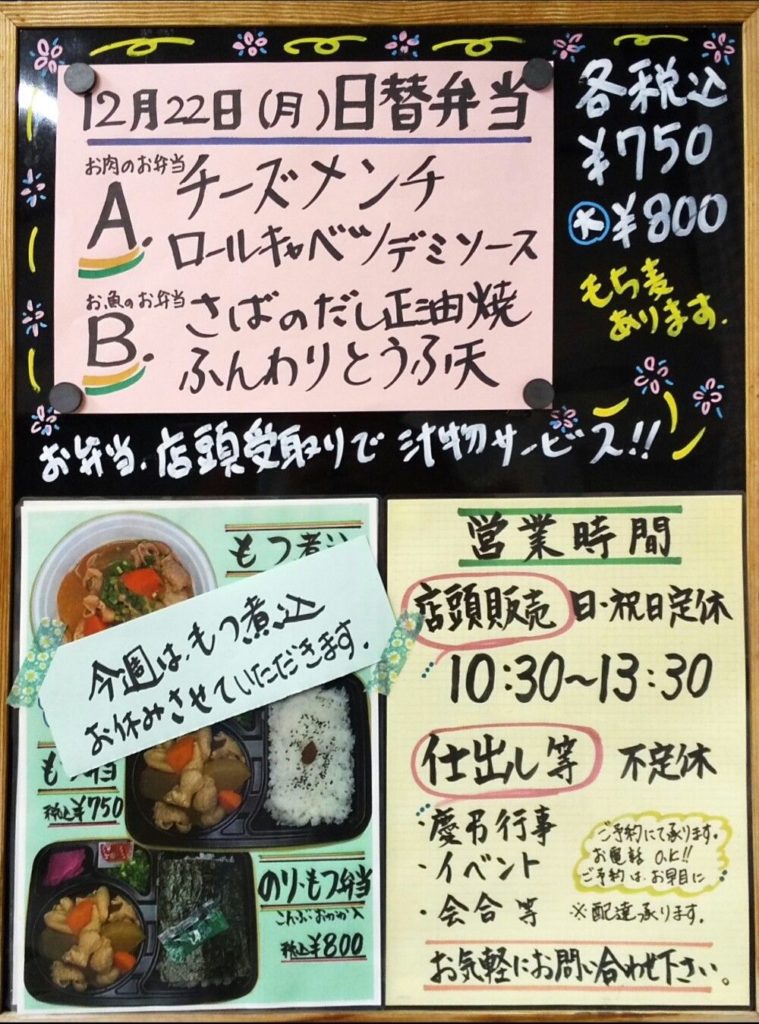 12月22日(月)日替弁当
お肉のお弁当
A. チーズメンチ
ロールキャベツ/デミソース
お魚のお弁当
B. さばのだし正油焼
ふんわりとうふ天
各税込
¥750
大¥800
もち麦
あります.
お弁当、店頭受取りで 汁物サービス!!
もつ煮込
今週は、もつ煮込
お休みさせていただきます.
税込¥750
のり・もつ弁当
こんぶ・おかか入
税込¥800
営業時間
店頭販売 日・祝日定休
10:30~13:30
仕出し等 不定休
・慶弔行事
・イベント
・会合 等
ご予約にて承ります。
お電話 O.K!!
ご予約は、お早目に
※配達承ります。
お気軽にお問い合わせ下さい。